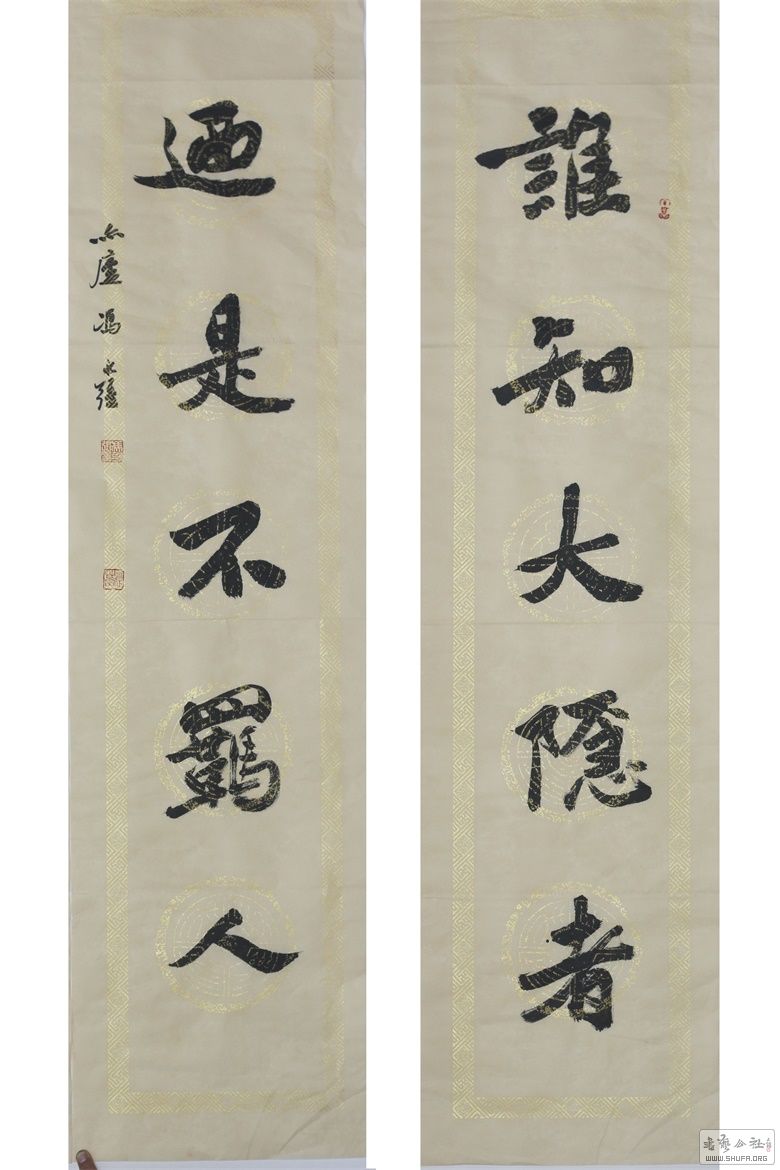 誰知大隱者
迺是不羈人
廬馮永
書藝公社
WWW.SHUFA.ORG